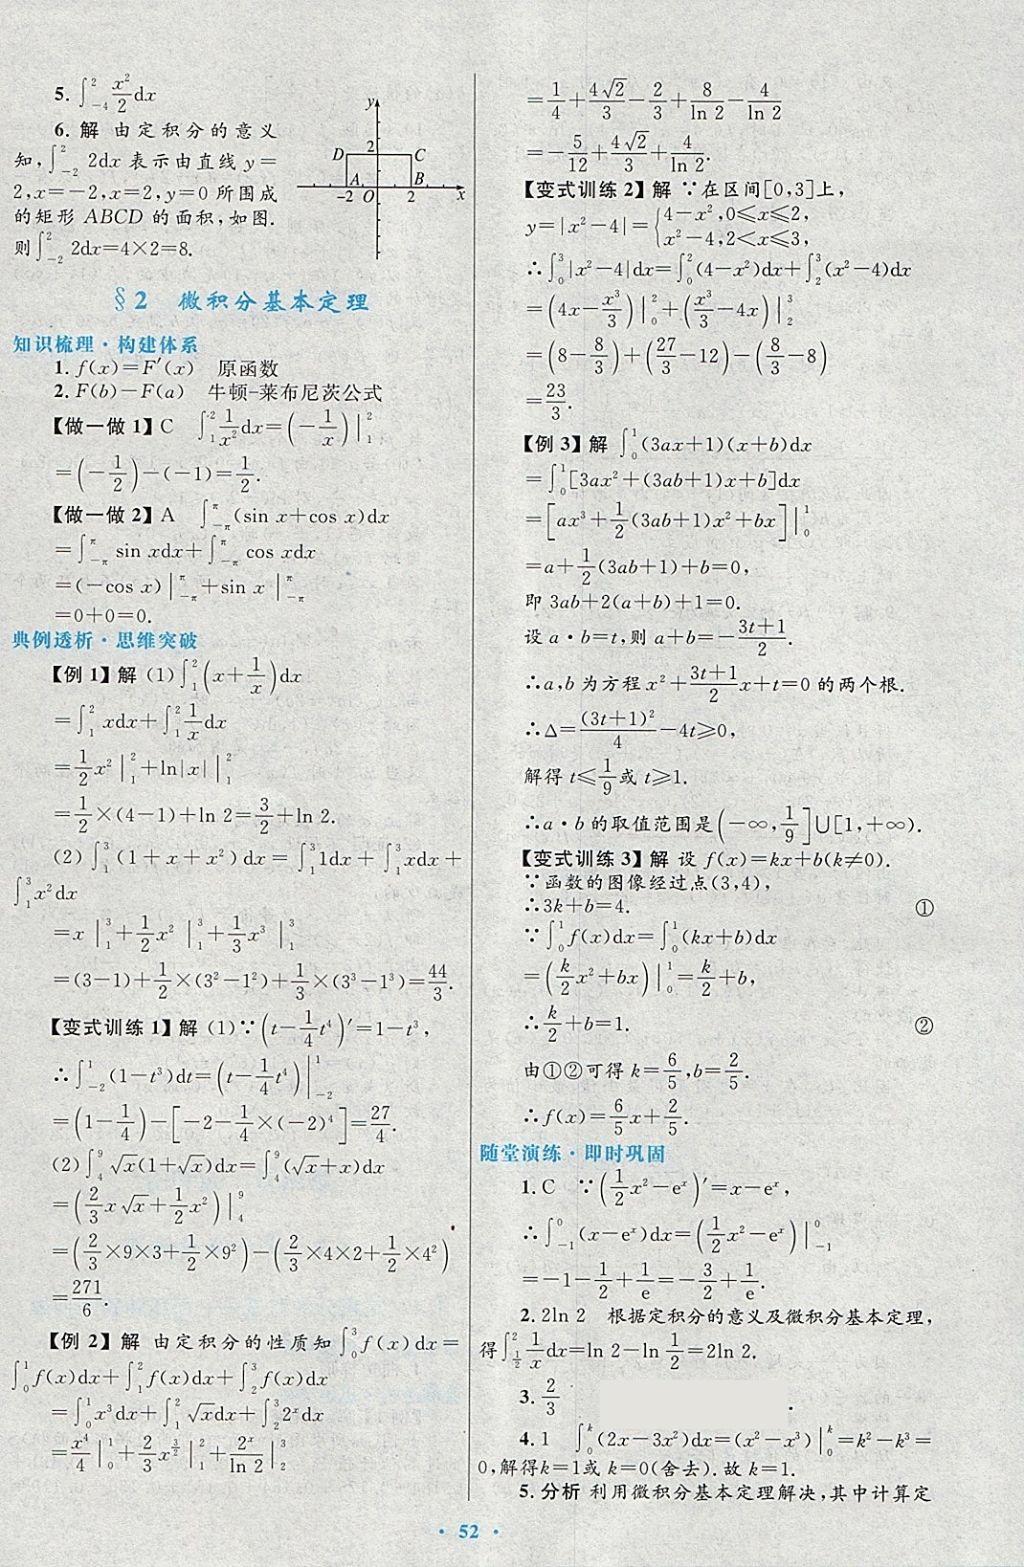 5. ∫₋₄² x²/2 dx
6. 解 由定积分的意义
知,∫₋₂² 2dx 表示由直线 y=
2,x=-2,x=2,y=0 所围成
的矩形 ABCD 的面积,如图.
则∫₋₂² 2dx=4×2=8.
y
D 2 C
A B
-2 O 2 x
§2 微积分基本定理
知识梳理·构建体系
1. f(x)=F′(x) 原函数
2. F(b)-F(a) 牛顿-莱布尼茨公式
【做一做1】C ∫₁² 1/x² dx=(-1/x)|₁²
=(-1/2)-(-1)=1/2.
【做一做2】A ∫₋π^π (sin x+cos x)dx
=∫₋π^π sin xdx+∫₋π^π cos xdx
=(-cos x)|₋π^π+sin x|₋π^π
=0+0=0.
典例透析·思维突破
【例1】解 (1)∫₁²(x+1/x)dx
=∫₁² xdx+∫₁² 1/x dx
=1/2 x²|₁²+ln|x||₁²
=1/2×(4-1)+ln 2=3/2+ln 2.
(2)∫₁³(1+x+x²)dx=∫₁³1dx+∫₁³xdx+
∫₁³x²dx
=x|₁³+1/2 x²|₁³+1/3 x³|₁³
=(3-1)+1/2×(3²-1²)+1/3×(3³-1³)=44/3.
【变式训练1】解 (1)∵(t-1/4 t⁴)′=1-t³,
∴∫₋₂¹(1-t³)dt=(t-1/4 t⁴)|₋₂¹
=(1-1/4)-[-2-1/4×(-2)⁴]=27/4.
(2)∫₄⁹√x(1+√x)dx=∫₄⁹(√x+x)dx
=(2/3 x√x+1/2 x²)|₄⁹
=(2/3×9×3+1/2×9²)-(2/3×4×2+1/2×4²)
=271/6.
【例2】解 由定积分的性质知∫₀³f(x)dx=
∫₀¹f(x)dx+∫₁²f(x)dx+∫₂³f(x)dx
=∫₀¹x³dx+∫₁²√xdx+∫₂³2ˣdx
=x⁴/4|₀¹+2/3 x^(3/2)|₁²+2ˣ/ln 2|₂³
=1/4+4√2/3-2/3+8/ln 2-4/ln 2
=-5/12+4√2/3+4/ln 2.
【变式训练2】解 ∵在区间[0,3]上,
y=|x²-4|={4-x²,0≤x≤2,
x²-4,2<x≤3,
∴∫₀³|x²-4|dx=∫₀²(4-x²)dx+∫₂³(x²-4)dx
=(4x-x³/3)|₀²+(x³/3-4x)|₂³
=(8-8/3)+(27/3-12)-(8/3-8)
=23/3.
【例3】解 ∫₀¹(3ax+1)(x+b)dx
=∫₀¹[3ax²+(3ab+1)x+b]dx
=[ax³+1/2(3ab+1)x²+bx]|₀¹
=a+1/2(3ab+1)+b=0,
即 3ab+2(a+b)+1=0.
设 a·b=t,则 a+b=-(3t+1)/2.
∴a,b 为方程 x²+(3t+1)/2 x+t=0 的两个根.
∴Δ=(3t+1)²/4-4t≥0,
解得 t≤1/9或 t≥1.
∴a·b 的取值范围是(-∞,1/9]∪[1,+∞).
【变式训练3】解 设 f(x)=kx+b(k≠0).
∵函数的图像经过点(3,4),
∴3k+b=4. ①
∵∫₀¹f(x)dx=∫₀¹(kx+b)dx
=(k/2 x²+bx)|₀¹=k/2+b,
∴k/2+b=1. ②
由①②可得 k=6/5,b=2/5.
∴f(x)=6/5 x+2/5.
随堂演练·即时巩固
1. C ∵(1/2 x²-eˣ)′=x-eˣ,
∴∫₋₁⁰(x-eˣ)dx=(1/2 x²-eˣ)|₋₁⁰
=-1-1/2+1/e=-3/2+1/e.
2. 2ln 2 根据定积分的意义及微积分基本定理,
得∫_(1/2)^2 1/x dx=ln 2-ln 1/2=2ln 2.
3. 2/3 .
4. 1 ∫₀ᵏ(2x-3x²)dx=(x²-x³)|₀ᵏ=k²-k³=
0,解得k=1或 k=0(舍去).故 k=1.
5. 分析 利用微积分基本定理解决,其中计算定
· 52 ·